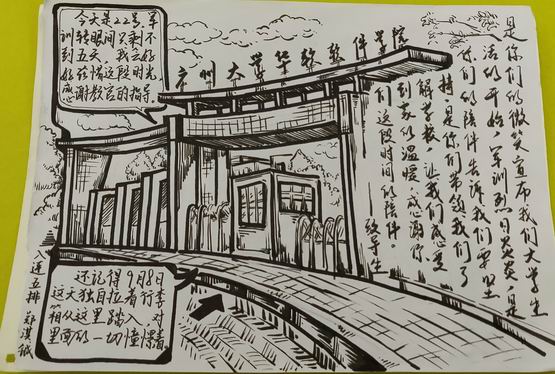 今天是22号,军
训转眼间只剩不
到五天,我会好
好珍惜这段时光,
感谢教官的指导。
广州大学华软软件学院
是你们的微笑宣布我们大学生
活的开始,军训烈日炎炎,是
你们的陪伴告诉我们要坚
持,是你们带领我们了
解学校,让我们感受
到家的温暖,感谢你
们这段时间的陪伴。
——致学生
还记得9月8日
这天独自拉着行李
箱从这里踏入,对
里面的一切憧憬着
八连五排